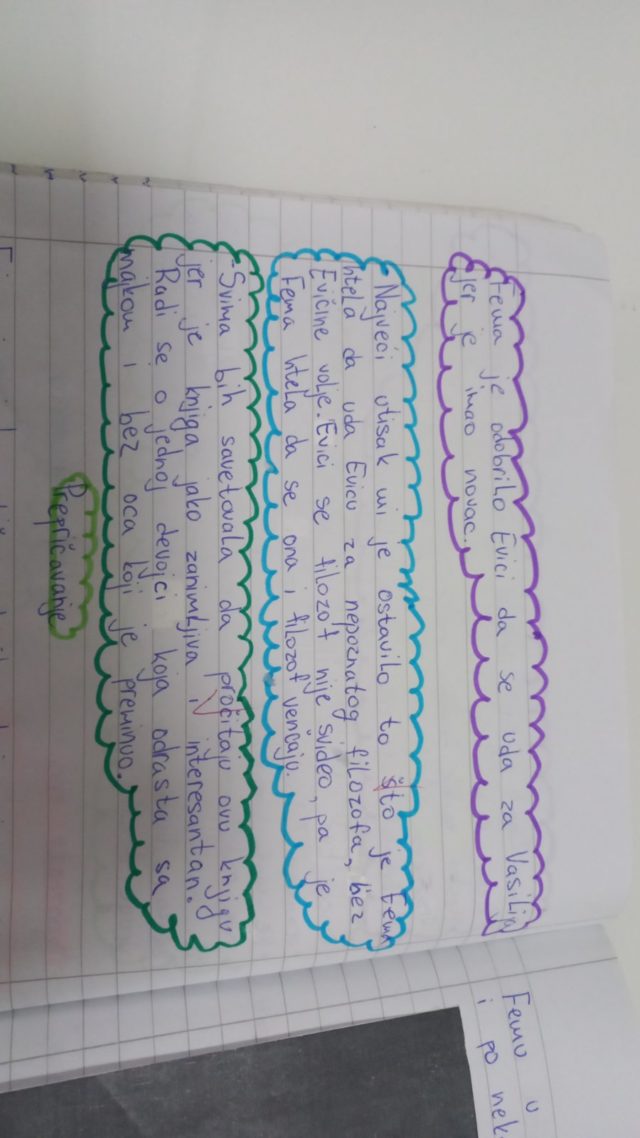 Fema je odobrilo Evici da se uda za Vasilija
jer je imao novac.
Najveći utisak mi je ostavilo to što je Fema
htela da uda Evicu za nepoznatog filozofa, bez
Evičine volje. Evici se filozof nije svideo, pa je
Fema htela da se ona i filozof venčaju.
-Svima bih savetovala da pročitaju ovu knjigu
jer je knjiga jako zanimljiva i interesantan.
Radi se o jednoj devojci koja odrasta sa
majkom i bez oca koji je preminuo.
Prepričavanje
Femu u
i po nek